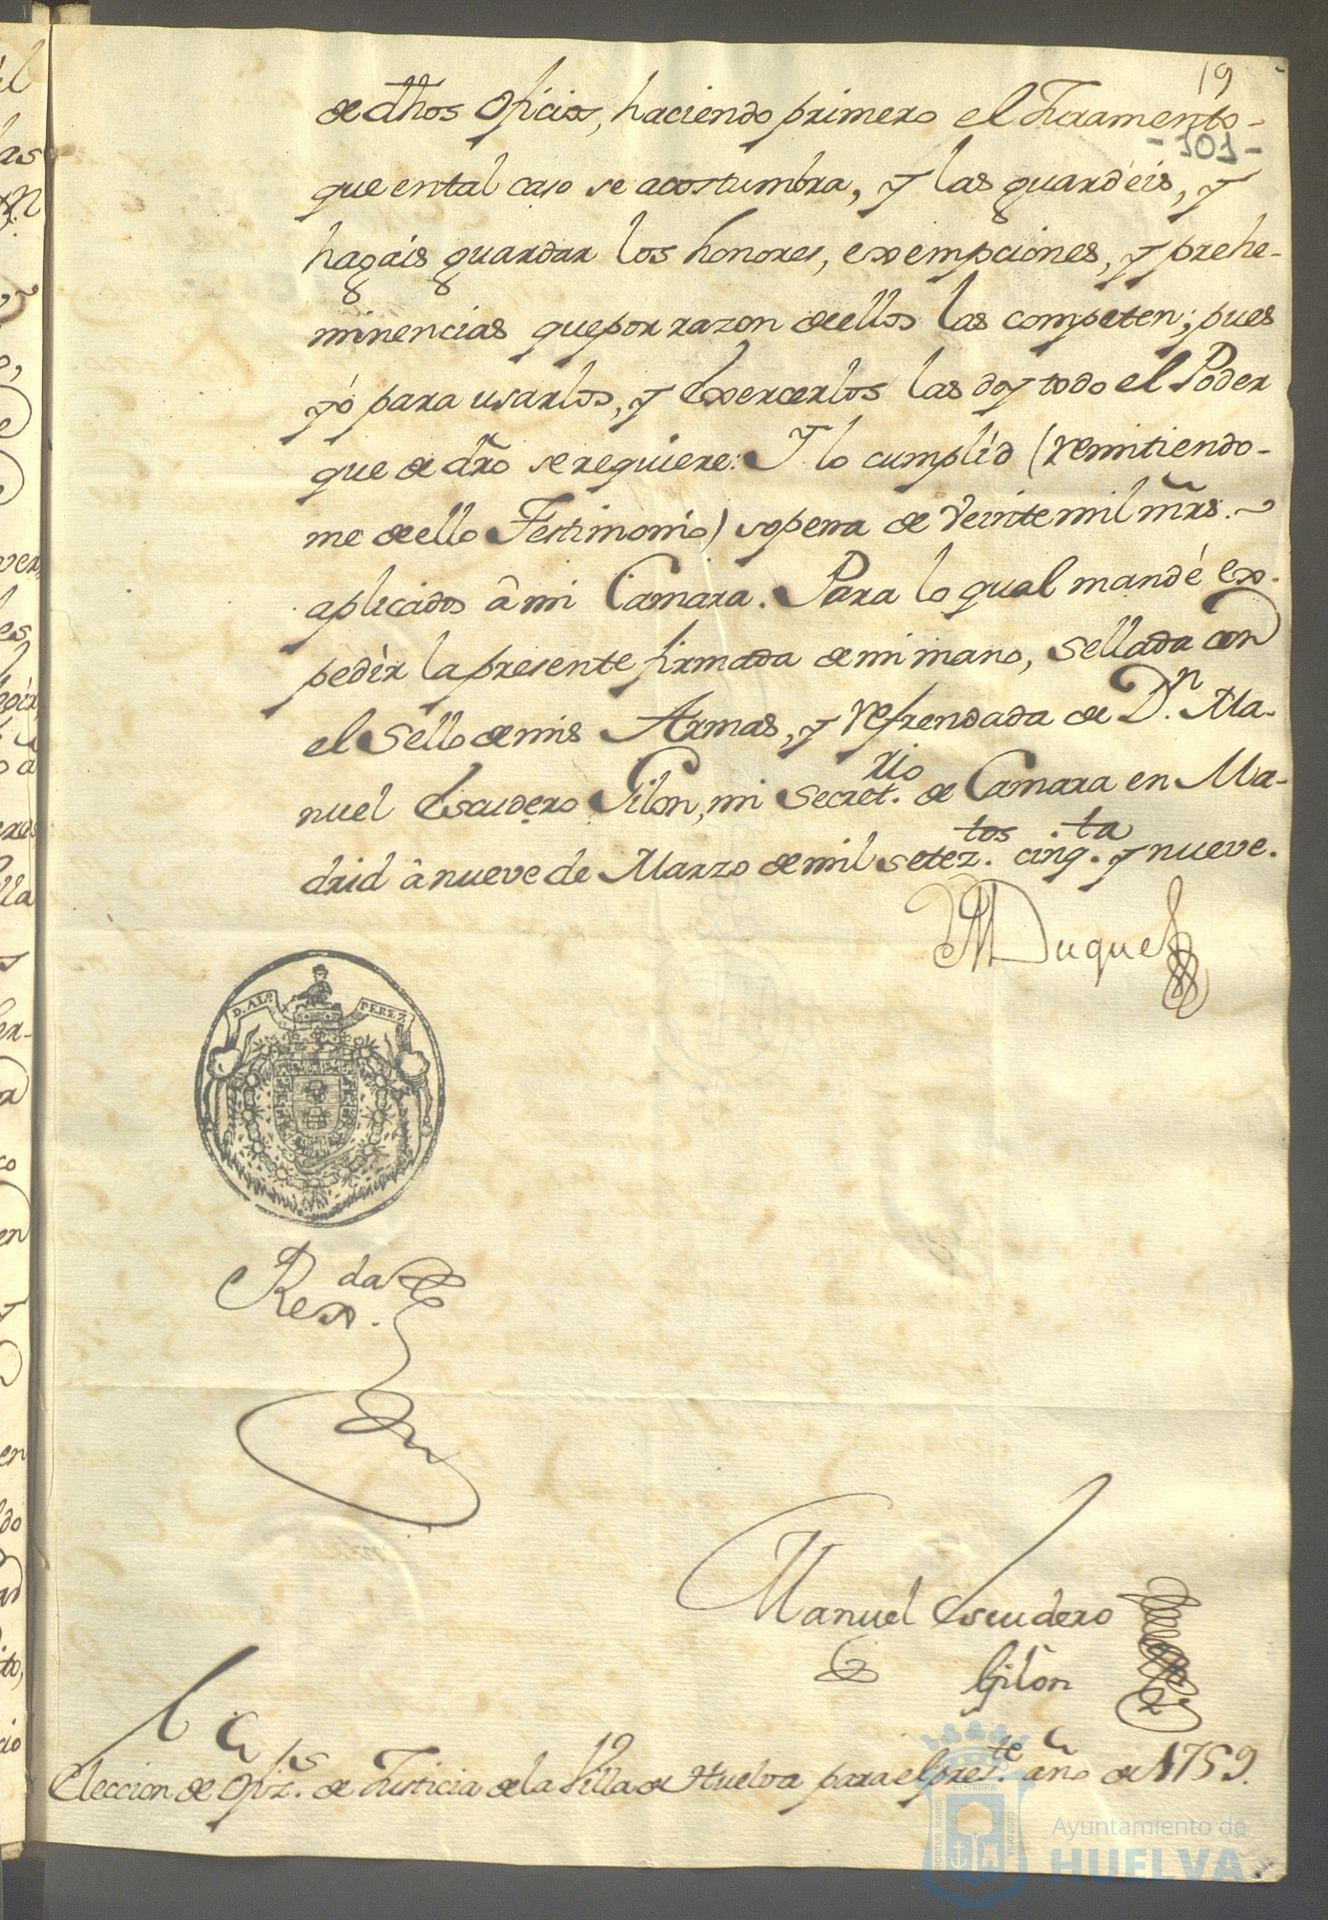 19
de dhos Oficios, haciendo primero el Juramento-
-101-
que ental caso se acostumbra, y las guardéis, y
hagáis guardar los honores, exempciones, y prehe-
minencias quepor razon deellos las competen; pues
yó para usarlos, y Exercerlos las doy todo el Poder
que de dro serequiere: Y lo cumplíd (remitiendo-
me deello Testimonio) sopena de Veinte mil mrs.
aplicados â mi Camara. Para lo qual mandé ex-
pedir la presente firmada de mi mano, Sellada con
el Sello de mis Armas, y refrendada de Dn. Ma-
nuel Escudero Gilon, mi Secret.rio de Camara en Ma-
drid â nueve de Marzo de mil setez.tos cinq.ta y nueve.
Duque
D. ALo PEREZ
Rexda.
Manuel Escudero
Gilón
Eleccion de Ofiz.s de Justicia de la Villa de Huelva para el pres.te año de 1759.
Ayuntamiento de
HUELVA